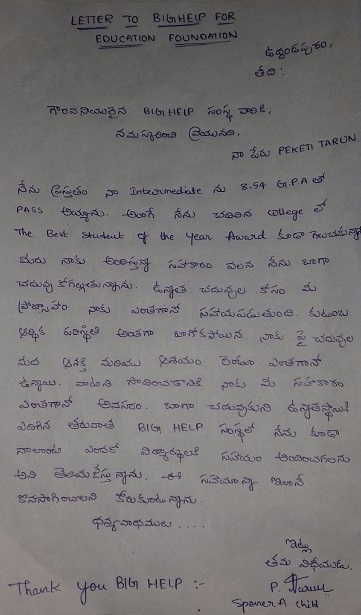 LETTER TO BIGHELP FOR
EDUCATION FOUNDATION
ఉద్దండపురం,
తేది:
గౌరవనీయులైన BIGHELP సంస్థ వారికి,
నమస్కరించి వ్రాయునది,
నా పేరు PEKETI TARUN.
నేను ప్రస్తుతం నా Intermediate ను 8.54 G.P.A తో
PASS అయ్యాను. అలాగే నేను చదివిన college లో
The Best Student of the Year Award కూడా గెలుచుకున్నాను
మీరు నాకు అందిస్తున్న సహకారం వలన నేను బాగా
చదువు కోగల్గుతున్నాను. ఉన్నత చదువుల కోసం మీ
ప్రోత్సాహం నాకు ఎంతగానో సహాయపడుతుంది. కుటుంబ
ఆర్థిక పరిస్థితి అంతగా బాగోకపోయిన నాకు పై చదువుల
మీద ఆసక్తి మరియు ఆశయం రెండూ ఎంతగానో
ఉన్నాయి. వాటిని సాధించడానికి నాకు మీ సహకారం
ఎంతగానో అవసరం. బాగా చదువుకుని ఉన్నతస్థాయికి
ఎదిగిన తరువాత BIG HELP సంస్థలో నేను కూడా
నాలాంటి ఎందరో విద్యార్థులకి సహాయం అందించగలను
అని తెలియచేస్తున్నాను. ఈ సహాయాన్ని ఇలానే
కొనసాగించాలని కోరుకుంటున్నాను.
ధన్యవాదములు....
ఇట్లు
తమ విధేయుడు.
Thank you BIG HELP :-
P.
Sponer A child